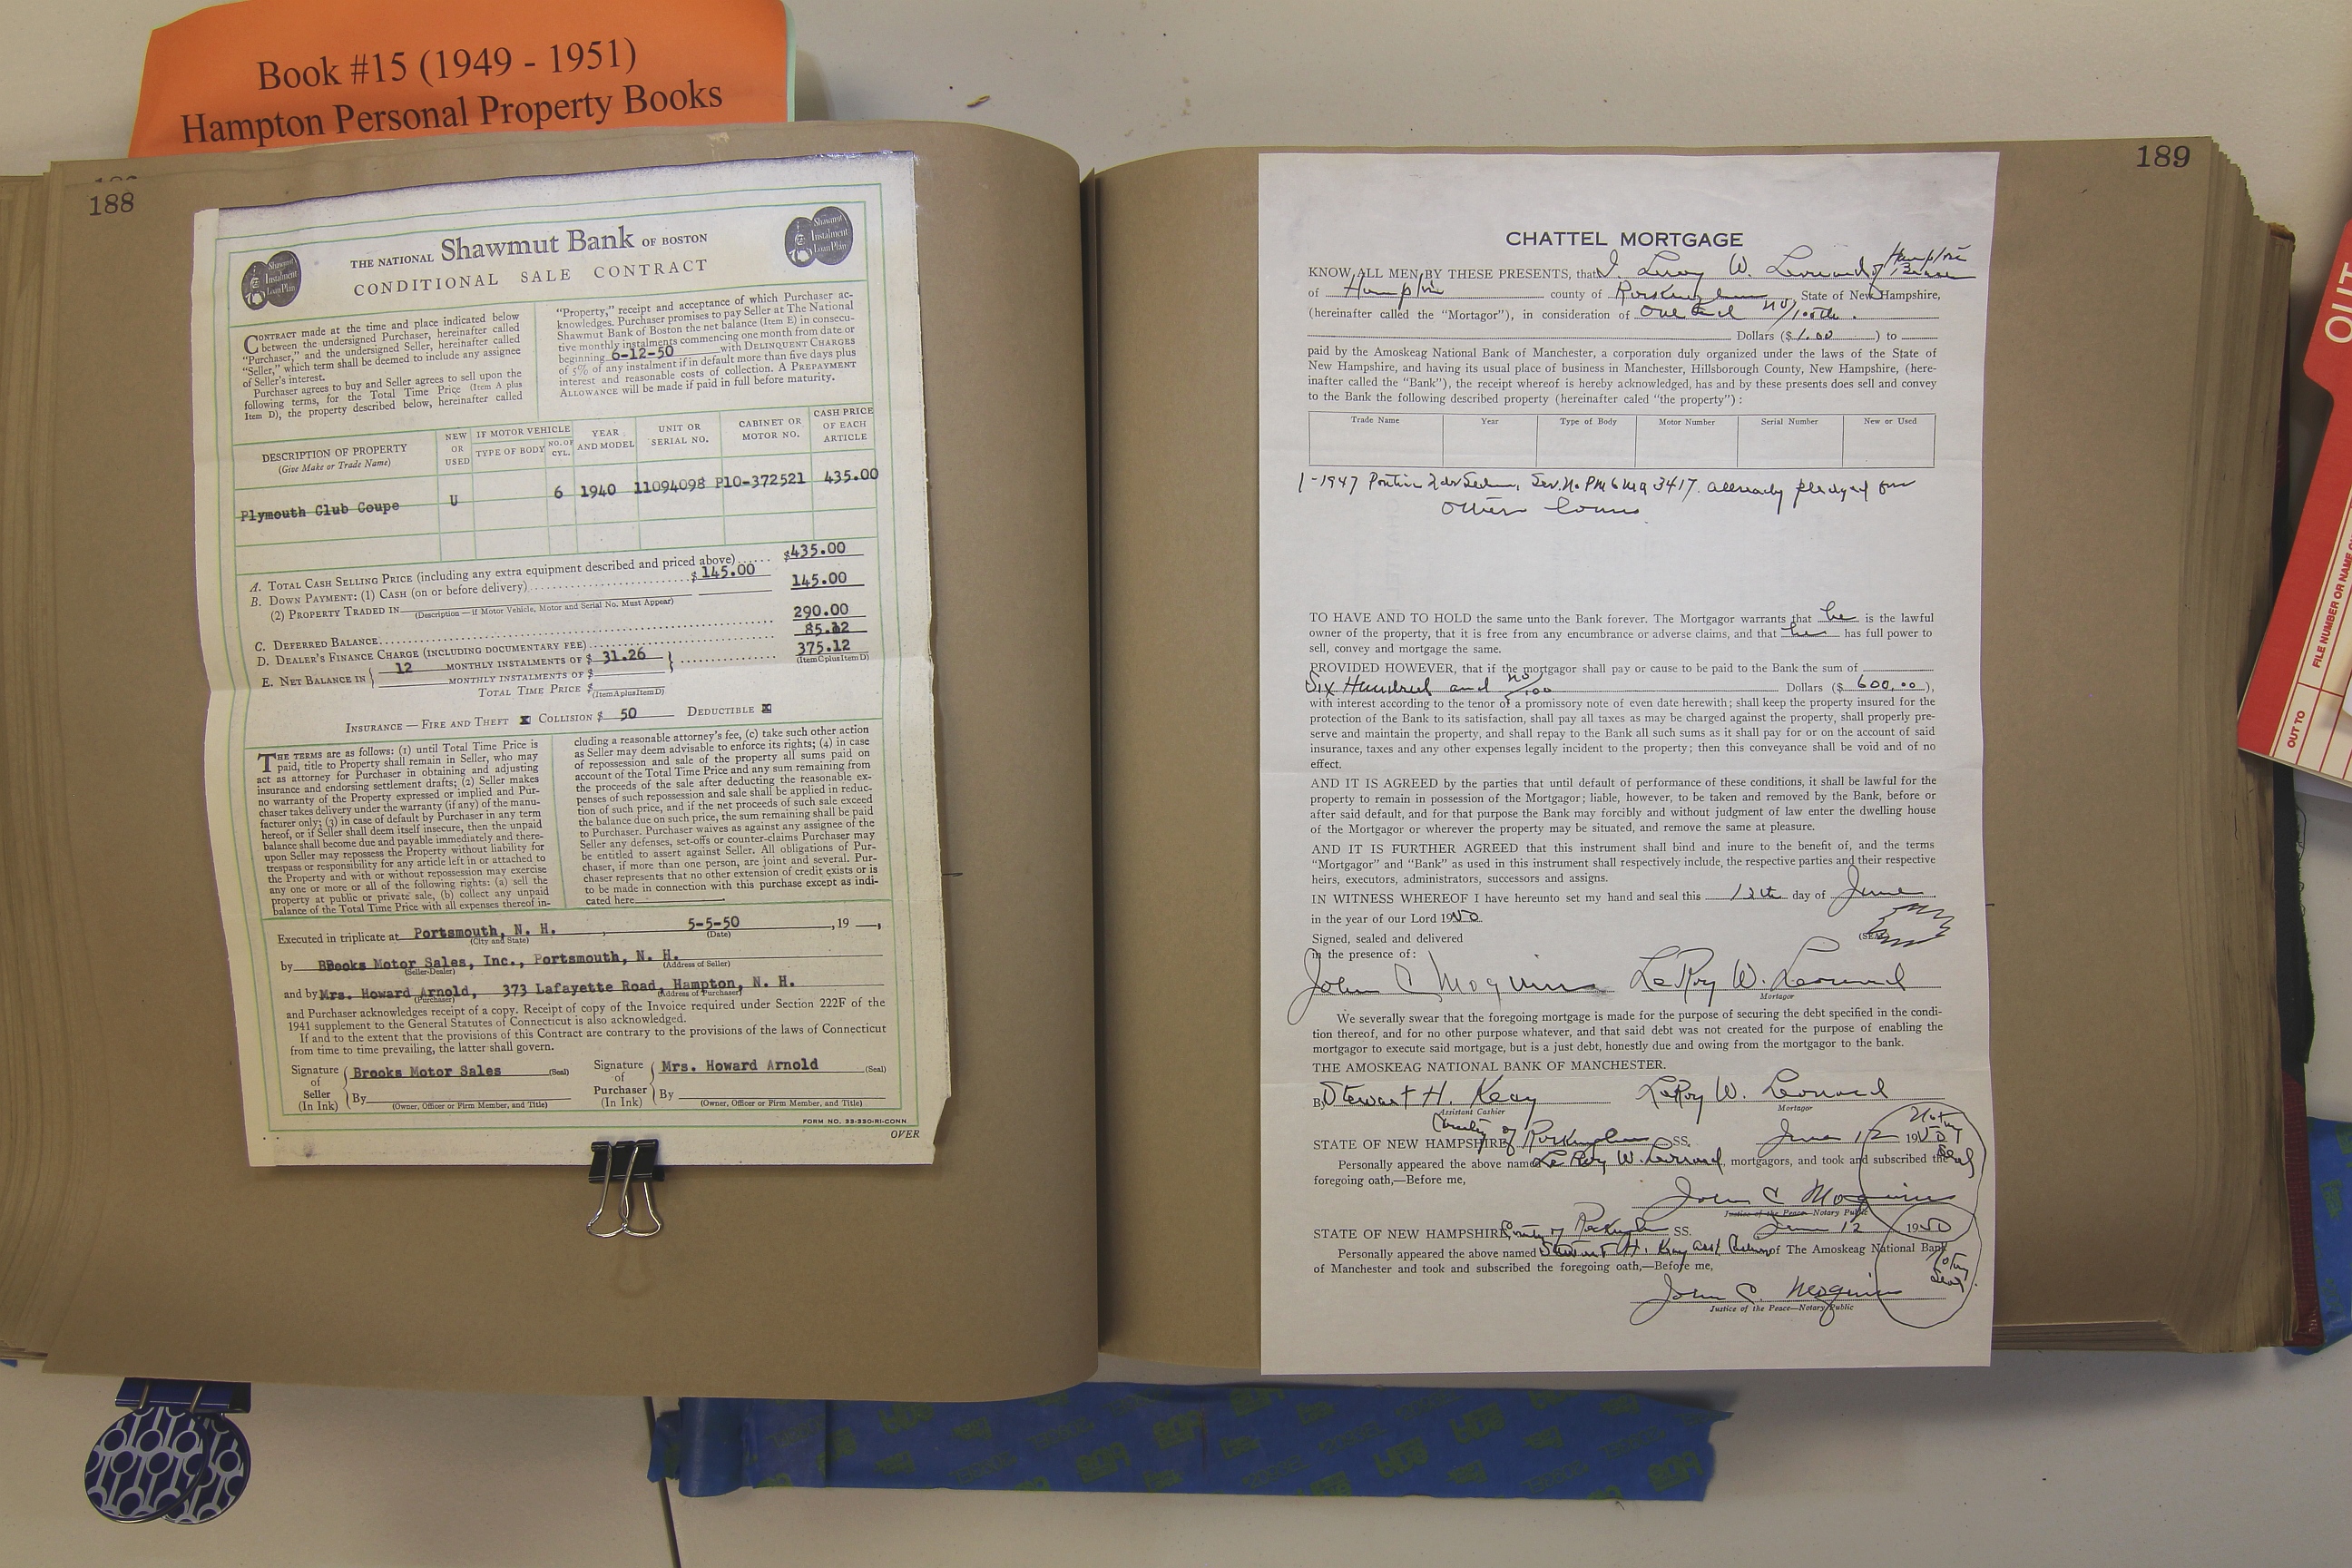 Book #15 (1949 - 1951)
Hampton Personal Property Books
188
THE NATIONAL Shawmut Bank OF BOSTON
CONDITIONAL SALE CONTRACT
Shawmut
Instalment
Loan Plan
Shawmut
Instalment
Loan Plan
CONTRACT made at the time and place indicated below
between the undersigned Purchaser, hereinafter called
"Purchaser," and the undersigned Seller, hereinafter called
"Seller," which term shall be deemed to include any assignee
of Seller's interest.
Purchaser agrees to buy and Seller agrees to sell upon the
following terms, for the Total Time Price (Item A plus
Item D), the property described below, hereinafter called
"Property," receipt and acceptance of which Purchaser ac-
knowledges. Purchaser promises to pay Seller at The National
Shawmut Bank of Boston the net balance (Item E) in consecu-
tive monthly instalments commencing one month from date or
beginning 6-12-50 with DELINQUENT CHARGES
of 5% of any instalment if in default more than five days plus
interest and reasonable costs of collection. A PREPAYMENT
ALLOWANCE will be made if paid in full before maturity.
DESCRIPTION OF PROPERTY
(Give Make or Trade Name)
NEW
OR
USED
IF MOTOR VEHICLE
TYPE OF BODY
NO. OF
CYL.
YEAR
AND MODEL
UNIT OR
SERIAL NO.
CABINET OR
MOTOR NO.
CASH PRICE
OF EACH
ARTICLE
Plymouth Club Coupe U 6 1940 11094098 P10-372521 435.00
A. TOTAL CASH SELLING PRICE (including any extra equipment described and priced above) $435.00
B. DOWN PAYMENT: (1) CASH (on or before delivery) $145.00
(2) PROPERTY TRADED IN 145.00
(Description — if Motor Vehicle, Motor and Serial No. Must Appear)
C. DEFERRED BALANCE 290.00
D. DEALER'S FINANCE CHARGE (INCLUDING DOCUMENTARY FEE) 85.12
E. NET BALANCE IN { 12 MONTHLY INSTALMENTS OF $ 31.26 } 375.12
MONTHLY INSTALMENTS OF $ (Item C plus Item D)
TOTAL TIME PRICE $
(Item A plus Item D)
INSURANCE — FIRE AND THEFT X COLLISION $ 50 DEDUCTIBLE X
THE TERMS are as follows: (1) until Total Time Price is
paid, title to Property shall remain in Seller, who may
act as attorney for Purchaser in obtaining and adjusting
insurance and endorsing settlement drafts; (2) Seller makes
no warranty of the Property expressed or implied and Pur-
chaser takes delivery under the warranty (if any) of the manu-
facturer only; (3) in case of default by Purchaser in any term
hereof, or if Seller shall deem itself insecure, then the unpaid
balance shall become due and payable immediately and there-
upon Seller may repossess the Property without liability for
trespass or responsibility for any article left in or attached to
the Property and with or without repossession may exercise
any one or more or all of the following rights: (a) sell the
property at public or private sale, (b) collect any unpaid
balance of the Total Time Price with all expenses thereof in-
cluding a reasonable attorney's fee, (c) take such other action
as Seller may deem advisable to enforce its rights; (4) in case
of repossession and sale of the property all sums paid on
account of the Total Time Price and any sum remaining from
the proceeds of the sale after deducting the reasonable ex-
penses of such repossession and sale shall be applied in reduc-
tion of such price, and if the net proceeds of such sale exceed
the balance due on such price, the sum remaining shall be paid
to Purchaser. Purchaser waives as against any assignee of the
Seller any defenses, set-offs or counter-claims Purchaser may
be entitled to assert against Seller. All obligations of Pur-
chaser, if more than one person, are joint and several. Pur-
chaser represents that no other extension of credit exists or is
to be made in connection with this purchase except as indi-
cated here
Executed in triplicate at Portsmouth, N. H. , 5-5-50 , 19 ,
(City and State) (Date)
by BBooks Motor Sales, Inc., Portsmouth, N. H.
(Seller-Dealer) (Address of Seller)
and by Mrs. Howard Arnold, 373 Lafayette Road, Hampton, N. H.
(Purchaser) (Address of Purchaser)
and Purchaser acknowledges receipt of a copy. Receipt of copy of the Invoice required under Section 222F of the
1941 supplement to the General Statutes of Connecticut is also acknowledged.
If and to the extent that the provisions of this Contract are contrary to the provisions of the laws of Connecticut
from time to time prevailing, the latter shall govern.
Signature of Seller (In Ink) { Brooks Motor Sales (Seal)
By
(Owner, Officer or Firm Member, and Title)
Signature of Purchaser (In Ink) { Mrs. Howard Arnold (Seal)
By
(Owner, Officer or Firm Member, and Title)
FORM NO. 33-350-RI-CONN
OVER
189
CHATTEL MORTGAGE
KNOW ALL MEN BY THESE PRESENTS, that I, Leroy W. Leonard of Hampton
of Hampton county of Rockingham, State of New Hampshire,
(hereinafter called the "Mortagor"), in consideration of One and no/100ths
Dollars ($ 1.00 ) to
paid by the Amoskeag National Bank of Manchester, a corporation duly organized under the laws of the State of
New Hampshire, and having its usual place of business in Manchester, Hillsborough County, New Hampshire, (here-
inafter called the "Bank"), the receipt whereof is hereby acknowledged, has and by these presents does sell and convey
to the Bank the following described property (hereinafter caled "the property"):
Trade Name Year Type of Body Motor Number Serial Number New or Used
1-1947 Pontiac 2 dr Sedan, Ser. No PM6MA 3417. allready pledged for
other loans
TO HAVE AND TO HOLD the same unto the Bank forever. The Mortgagor warrants that he is the lawful
owner of the property, that it is free from any encumbrance or adverse claims, and that he has full power to
sell, convey and mortgage the same.
PROVIDED HOWEVER, that if the mortgagor shall pay or cause to be paid to the Bank the sum of
Six Hundred and no/100 Dollars ($ 600.00 ),
with interest according to the tenor of a promissory note of even date herewith; shall keep the property insured for the
protection of the Bank to its satisfaction, shall pay all taxes as may be charged against the property, shall properly pre-
serve and maintain the property, and shall repay to the Bank all such sums as it shall pay for or on the account of said
insurance, taxes and any other expenses legally incident to the property; then this conveyance shall be void and of no
effect.
AND IT IS AGREED by the parties that until default of performance of these conditions, it shall be lawful for the
property to remain in possession of the Mortgagor; liable, however, to be taken and removed by the Bank, before or
after said default, and for that purpose the Bank may forcibly and without judgment of law enter the dwelling house
of the Mortgagor or wherever the property may be situated, and remove the same at pleasure.
AND IT IS FURTHER AGREED that this instrument shall bind and inure to the benefit of, and the terms
"Mortgagor" and "Bank" as used in this instrument shall respectively include, the respective parties and their respective
heirs, executors, administrators, successors and assigns.
IN WITNESS WHEREOF I have hereunto set my hand and seal this 12th day of June
in the year of our Lord 1950
Signed, sealed and delivered
in the presence of: (SEAL)
John C Moquin LeRoy W. Leonard
Mortagor
We severally swear that the foregoing mortgage is made for the purpose of securing the debt specified in the condi-
tion thereof, and for no other purpose whatever, and that said debt was not created for the purpose of enabling the
mortgagor to execute said mortgage, but is a just debt, honestly due and owing from the mortgagor to the bank.
THE AMOSKEAG NATIONAL BANK OF MANCHESTER.
By Stewart H. Keay LeRoy W. Leonard
Assistant Cashier Mortagor
STATE OF NEW HAMPSHIRE County of Rockingham SS. June 12 1950 Notary Seal
Personally appeared the above named LeRoy W. Leonard, mortgagors, and took and subscribed the
foregoing oath,—Before me,
John C Moquin
Justice of the Peace—Notary Public
STATE OF NEW HAMPSHIRE, County of Rockingham SS. June 12 1950
Personally appeared the above named Stewart H. Keay asst Cashier of The Amoskeag National Bank
of Manchester and took and subscribed the foregoing oath,—Before me, Notary Seal
John C. Moquin
Justice of the Peace—Notary Public
OUT
FILE NUMBER OR NAME
OUT TO